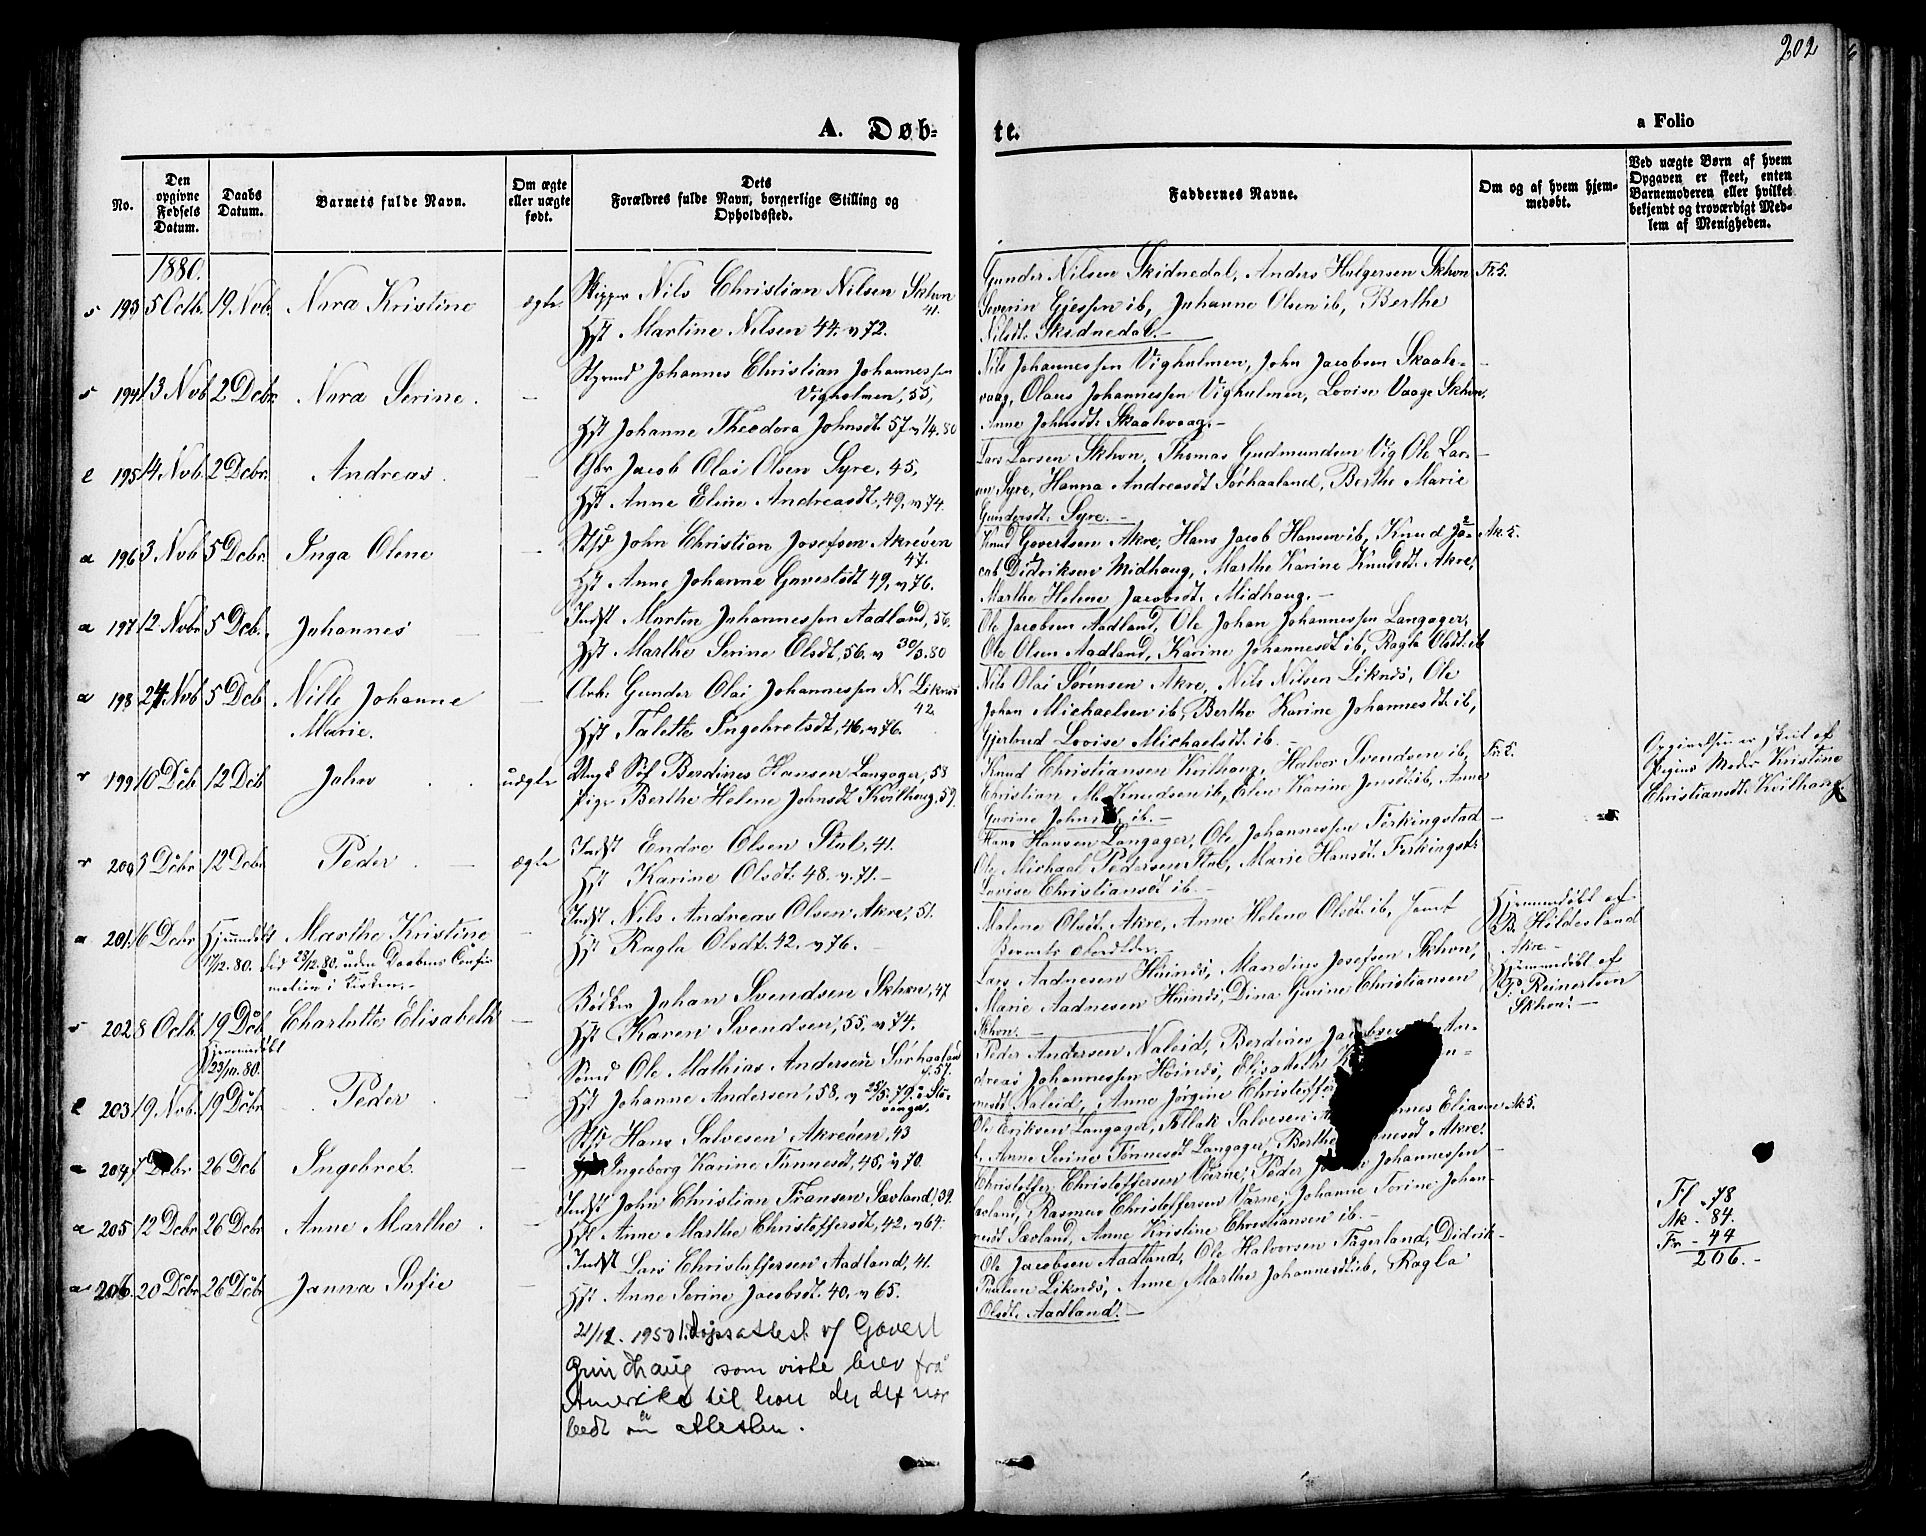 202
A. Døb-
te.
a Folio
No.
Den opgivne Fødsels Datum.
Daabs Datum.
Barnets fulde Navn.
Om ægte eller uægte født.
Dets Forældres fulde Navn, borgerlige Stilling og Opholdssted.
Faddernes Navne.
Om og af hvem hjemmedøbt.
Ved uægte Børn af hvem Opgaven er skeet, enten Barnemoderen eller hvilket bekjendt og troværdigt Medlem af Menigheden.
1880.
s 193 5 Octb. 19 Nov. Nora Kristine ægte Skipper Nils Christian Nilsen Skhvn 41.
Hst Martine Nilsen 44. v 72.
Gunder Nilsen Skidnedal, Anders Hulgersen Skhvn Fr. 5.
Severin Gjessen ib, Johanne Olsen ib, Berthe
Nilsdt. Skidnedal.—
s 194 13 Nvb 2 Dcbr. Nora Serine. — Styrmd Johannes Christian Johannessen
Vigholmen, 55,
Hst Johanne Theodora Johnsdt. 57 v 1/4.80
Nils Johannessen Vigholmen, John Jacobsen Skaale-
vaag, Olaus Johannessen Vigholmen, Lovise Vaage Skhvn,
Anne Johnsdt. Skaalevaag.—
e 195 14 Nvb. 2 Dcbr. Andreas. — Gbr Jacob Olai Olsen Syre, 45,
Hst Anne Eline Andreasdt. 49, v 74.
Lars Larsen Skhvn, Thomas Gudmundsen Vig, Ole Lar-
sen Syre, Hanna Andreasdt Sørhaaland, Berthe Marie
Gundersdt. Syre.—
a 196 3 Nvb 5 Dcbr. Inga Olene — Stsd John Christian Josefsen Akreøen
47.
Hst Anne Johanne Govertsdt 49, v 76.
Knud Govertsen Akre, Hans Jacob Hansen ib, Knud Ja- Ak. 5.
cob Didriksen Midhaug, Marthe Karine Knudsdt. Akre,
Marthe Helene Jacobsdt. Midhaug.—
a 197 12 Nvbr 5 Dcb. Johannes — Indst Martin Johannessen Aadland, 56.
Hst Marthe Serine Olsdt, 56. v 30/3.80
Ole Jacobsen Aadland, Ole Johan Johannessen Langager,
Ole Olsen Aadland, Karine Johannesdt ib, Ragla Olsdt. ib
a 198 24 Nvb 5 Dcb Nille Johanne — Arb. Gunder Olai Johannessen N. Liknes
42.
Marie.
Hst Talette Ingebretsdt, 46, v 76.
Nils Olai Sørensen Akre, Nils Nilsen Liknes, Ole
Johan Michaelsen ib, Berthe Karine Johannesdt. ib,
Gjertrud Lovise Michaelsdt. ib.—
r 199 10 Dcb. 12 Dcb John uægte Ungk Søf Berdines Hansen Langager, 58
Pige Berthe Helene Johnsdt Kvilhaug, 59.
Knud Christiansen Kvilhaug, Halvor Svendsen ib, Fr. 5.
Christian M. Knudsen ib, Elen Karine Jensdt. ib, Anne
Gurine Johnsdt. ib.—
Opgivelsen er skeet af
Pigens Moder Kristine
Christiansdt. Kvilhaug.
r 200 5 Dcbr 12 Dcbr Peder. — ægte Indst Endre Olsen Stol, 41.
Hst Karine Olsdt. 48. v. 71.—
Hans Hansen Langager, Ole Johannessen Ferkingstad
Ole Michael Pedersen Stol, Marie Hansdt. Ferkingst.
Lovise Christiansdt ib.—
a 201. 16 Dcbr Hjemmedøbt Marthe Kristine Indst Nils Andreas Olsen Akre, 51.
17/12.80. død 28/12.80. uden Daabens Confir
mation i Kirken.—
Hst Ragla Olsdt. 42. v 76.—
Malene Olsdt. Akre, Anne Helene Olsdt. ib, samt
Barnets Forældre.
Hjemmedøbt af
B. Hildesland
Akre.—
s 202 8 Octb. 19 Dcb Charlotte Elisabeth — Bødker Johan Svendsen Skhvn, 47
Hjemmedøbt
23/10.80.
Hst Karen Svendsen, 55. v 74.
Lars Aadnesen Huines, Mandius Josefsen Skhvn,
Marie Aadnesen Huines, Dina Gurine Christiansen
Skhvn.—
Hjemmedøbt af
P. Reinertsen
Skhvn.—
e 203 19 Nvb. 19 Dcbr Peder. — Sømd Ole Mathias Andersen Sørhaaland
f. 57.
Hst Johanne Andersen, 58. v 25/5.79. i Sta-
vanger.
Peder Andersen Naleid, Berdines Jacobsen An-
dreas Johannessen Hoines, Elisabeth
Naleid, Anne Jørgine Christoffer
a 204 7 Dcbr 26 Dcb Ingebret. — Stsd Hans Salvesen Akreøen, 43
Ingeborg Karine Tønnesdt, 45, v 70.
Ole Eriksen Langager, Tollak Salvesen Eliasen Ak 5.
Anne Serine Tønnesdt Langager, Berthe Akre.
a 205 12 Dcbr 26 Dcbr Anne Marthe. — Indst John Christian Fransen Sævland, 39.
Hst Anne Marthe Christoffersdt, 42, v 64.
Christoffer ChristoffersenVærne, Peder Johannessen
Sævland, Rasmus Christoffersen Værne, Johanne Serine Johan-
nesdt Sævland, Anne Kristine Christiansen ib.—
a 206. 20 Dcbr 26 Dcbr Janna Sofie — Indst Lars Christoffersen Aadland, 41.
Hst Anne Serine Jacobsdt. 40, v 65.
Ole Jacobsen Aadland, Ole Halvorsen Fagerland, Didrik-
Paulsen Liknes, Anne Marthe Johannesdt. ib, Ragla
Olsdt. Aadland.—
Fl. 78
Ak. 84.
Fr. 44
206.—
21/12. 1950 t. dåpsattest v/ Govert
Grindhaug som viste brev frå
Amerika til han der det var
bedt om attesten.